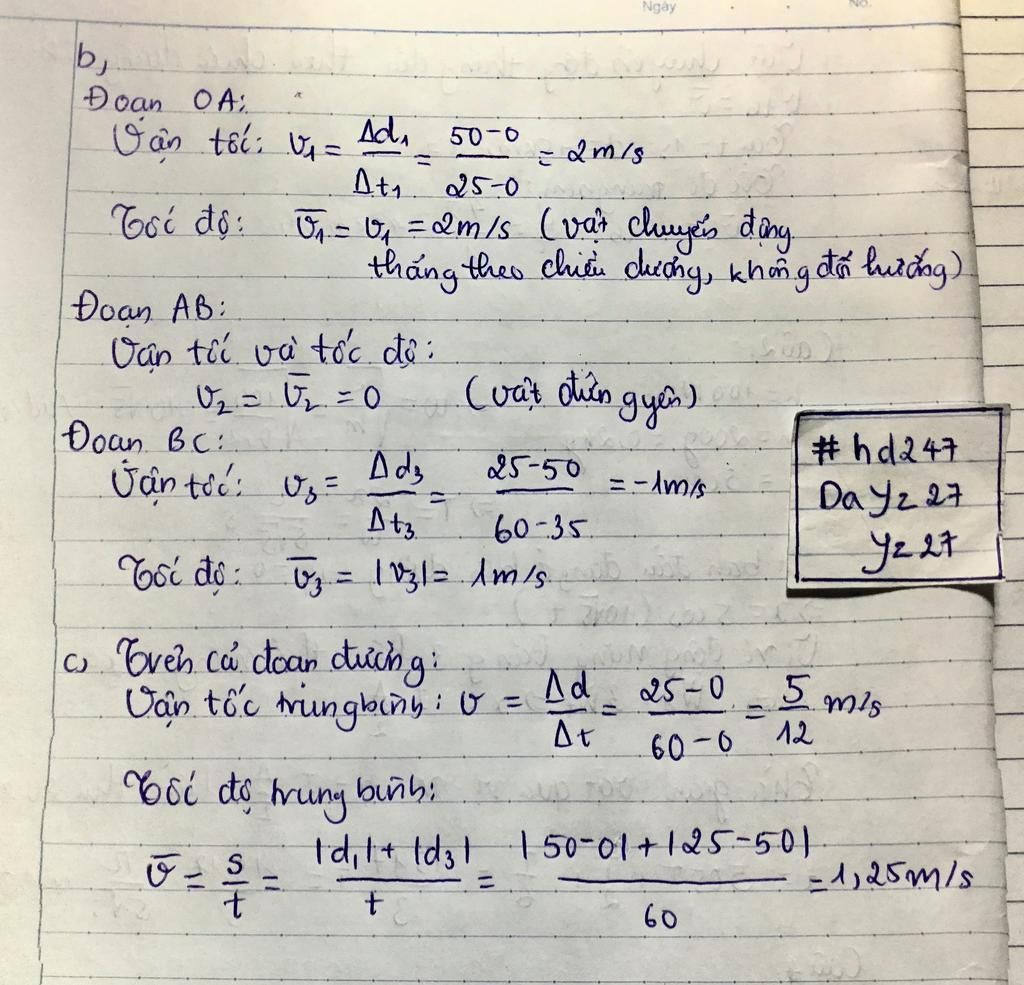 Ngày
No.
b,
Đoạn OA:
Vận tốc: v₁ = Δd₁/Δt₁ = 50-0/25-0 = 2m/s
Tốc độ: v̄₁ = v₁ = 2m/s (vật chuyển động
thẳng theo chiều dương, không đổi hướng)
Đoạn AB:
Vận tốc và tốc độ:
v₂ = v̄₂ = 0 (vật đứng yên)
Đoạn BC:
Vận tốc: v₃ = Δd₃/Δt₃ = 25-50/60-35 = -1m/s
Tốc độ: v̄₃ = |v₃| = 1m/s
# hd247
DaYz27
Yz27
c, Trên cả đoạn đường:
Vận tốc trung bình: v = Δd/Δt = 25-0/60-0 = 5/12 m/s
Tốc độ trung bình:
v̄ = s/t = |d₁|+|d₃|/t = |50-0|+|25-50|/60 = 1,25m/s